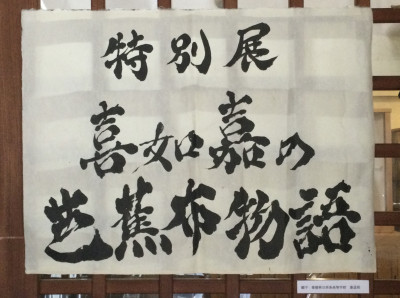 特別展
喜如嘉の
芭蕉布物語